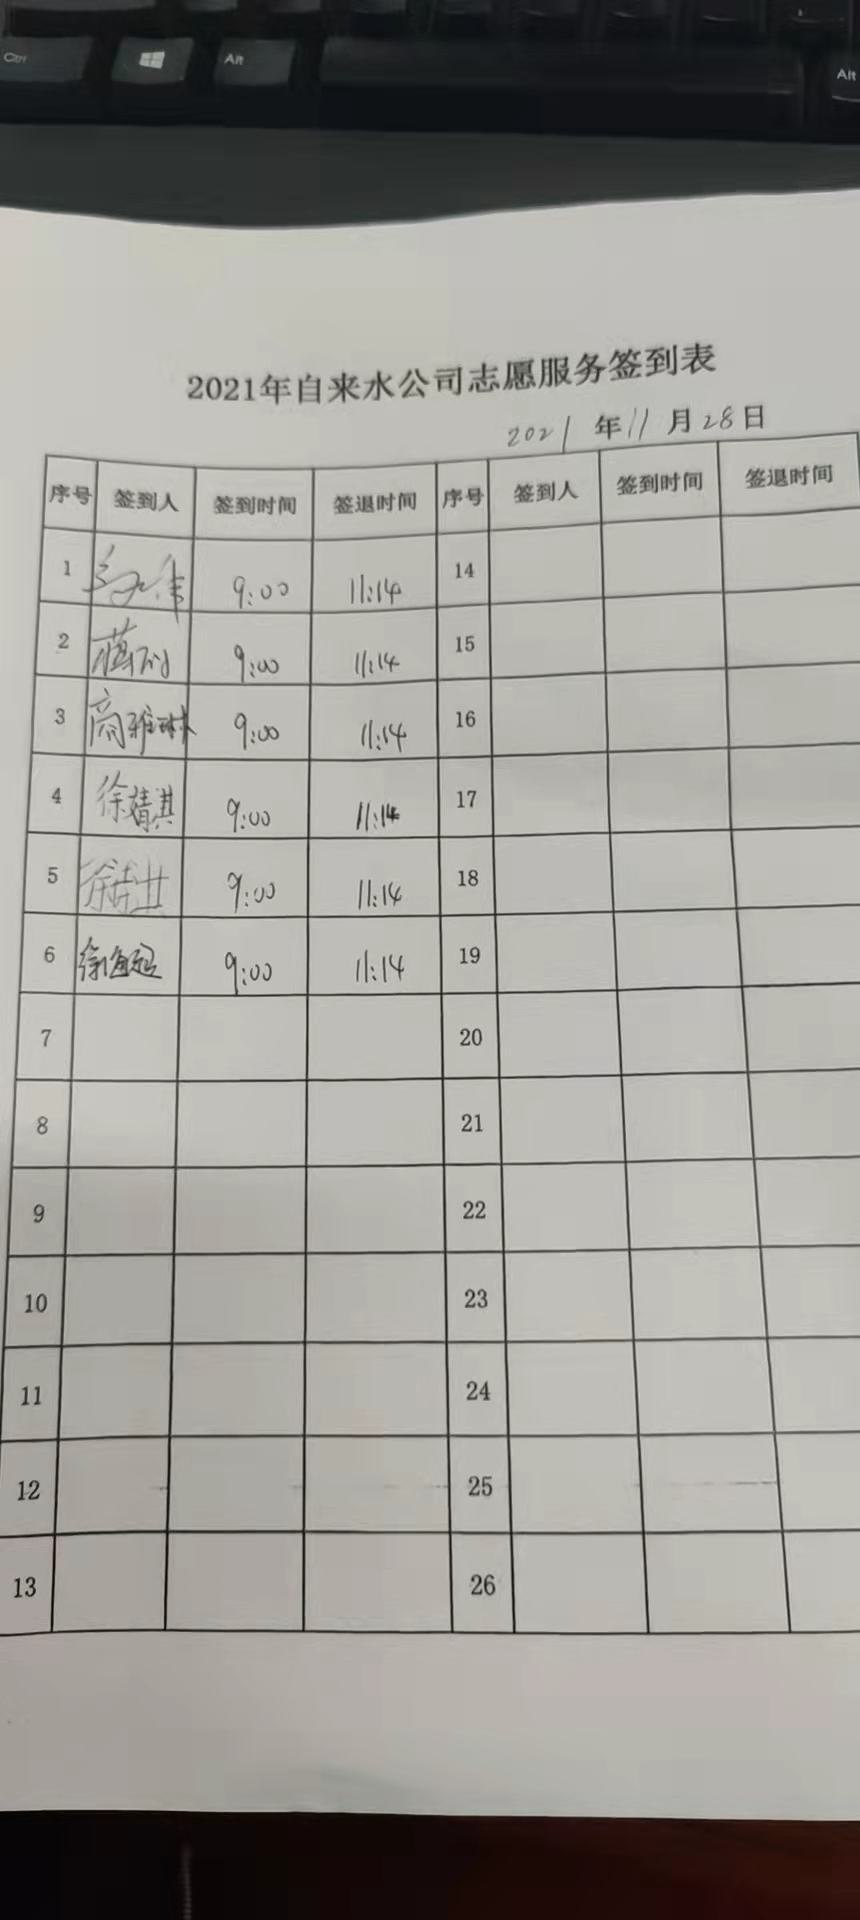 Ctrl Alt Alt
2021年自来水公司志愿服务签到表
2021年11月28日
序号 签到人 签到时间 签退时间 序号 签到人 签到时间 签退时间
1 9:00 11:14 14
2 9:00 11:14 15
3 商雅琳 9:00 11:14 16
4 徐婧淇 9:00 11:14 17
5 9:00 11:14 18
6 9:00 11:14 19
7 20
8 21
9 22
10 23
11 24
12 25
13 26